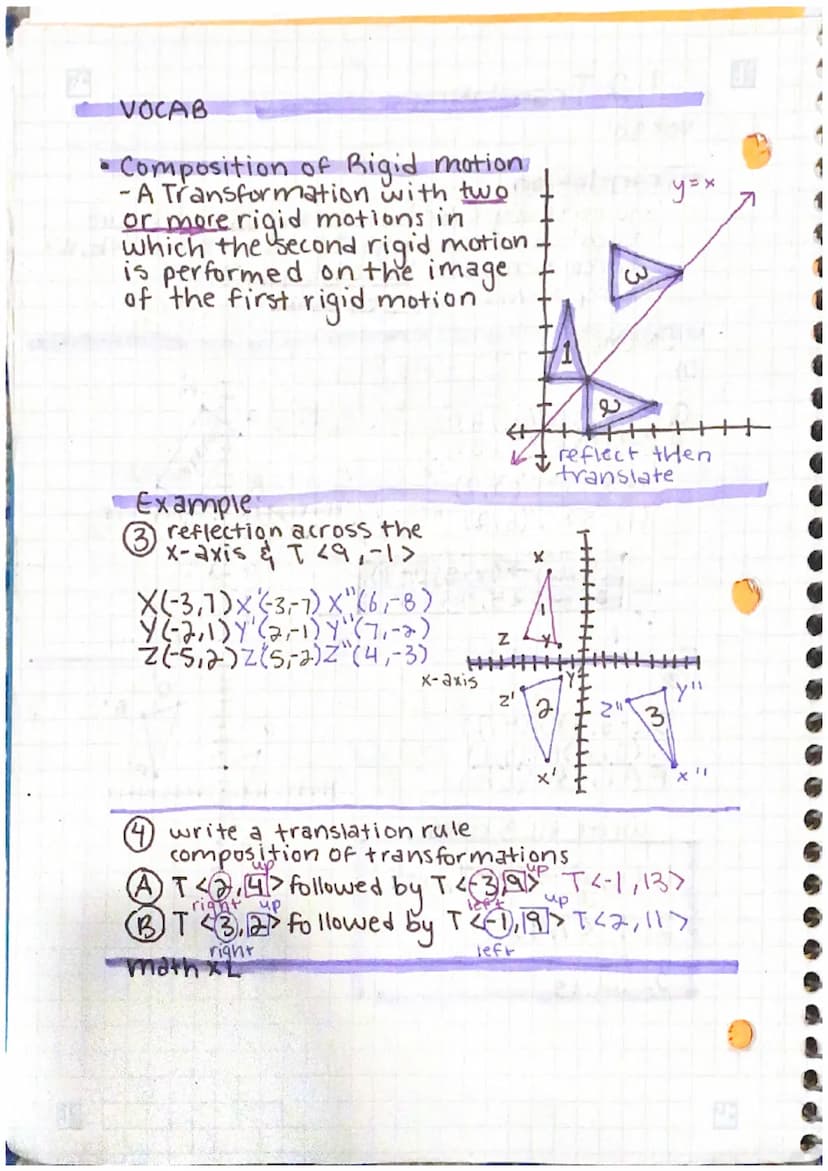 VOCAB
• Composition of Rigid motion
- A Transformation with two
or more rigid motions in
which the second rigid motion
is performed on the image
of the first rigid motion
y=x
3
1
2
reflect then
translate
Example
③ reflection across the
x-axis & T <9,-1>
X(-3,7) X'(-3,-7) X"(6,-8)
Y(-2,1) Y'(2,-1) Y"(7,-2)
Z(-5,2) Z(5,-2) Z"(4,-3)
X
1
Z Y
x-axis
Z' Y'
2
X'
Z" Y"
3
X"
④ write a translation rule
composition of transformations
up up
Ⓐ T <2,4> followed by T <-3,9> T <-1,13>
right up left up
Ⓑ T <3,2> followed by T <-1,9> T <2,11>
right left
math XL